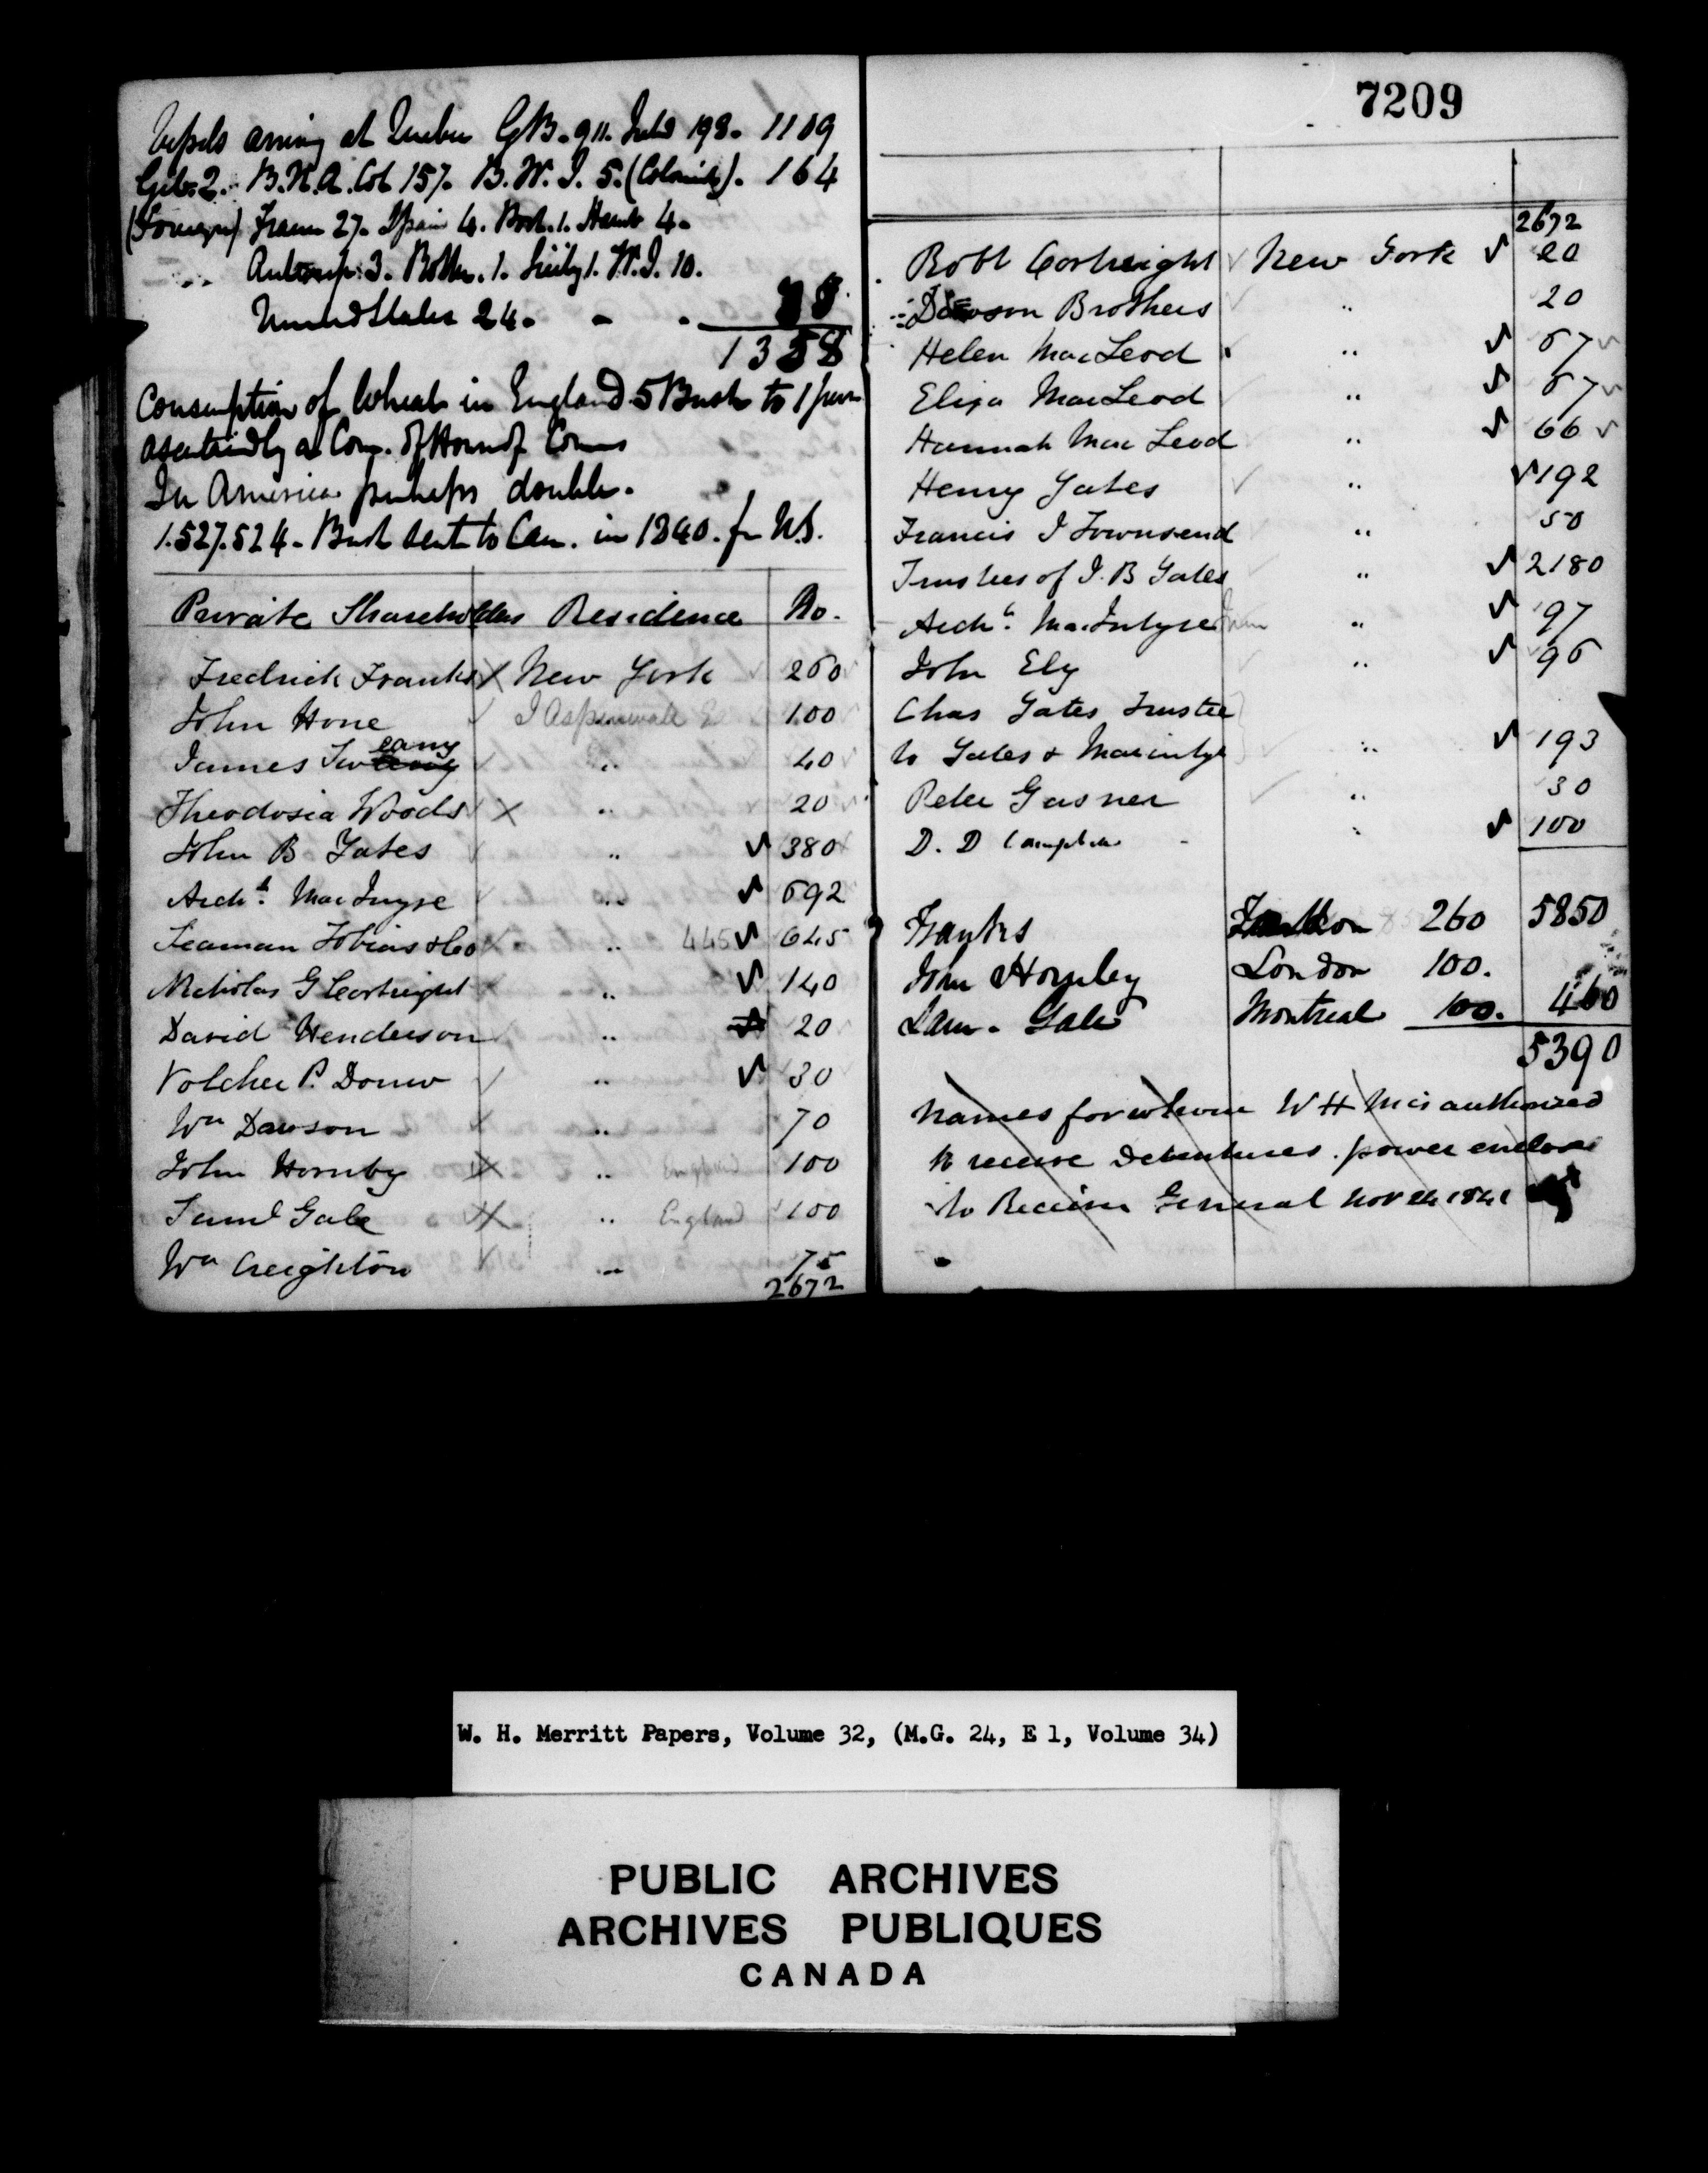 7209
Vessels arriving at Quebec G B. 911. Irld 198. 1109
Gib. 2. B. N. A. Col 157. B. W. I. 5. (Colonies). 164
(Foreign) France 27. Spain 4. Port. 1. Hamb 4.
" Antwerp 3. Rottm. 1. Sicily 1. W. I. 10.
United States 24 - - -
1358
Consumption of Wheat in England 5 Bush to 1 pern
by a Com. of House of Coms
In America perhaps double.
1.527.524 - Bush sent to Can. in 1840. fr U.S.
Private Shareholders Residence No.
Fredrick Franks X New York 260
John Hone J Aspinwall 100
James Sweany " 40
Theodosia Woods X " 20
John B Yates " 380
Archd. MacIntyre " 692
Seaman Tobias & Co X " 445 645
Nicholas G Cortright X " 140
David Henderson " 20
Volcher P. Douw " 30
Wm Dawson " 70
John Hornby X " England 100
Saml Gale X " England 100
Wm Creighton " 75
2672
2672
Robt Cortright New York 20
Dawson Brothers " 20
Helen MacLeod " 67
Eliza MacLeod " 67
Hannah MacLeod " 66
Henry Yates " 192
Francis J Townsend " 50
Trustees of J. B Yates " 2180
Archd. MacIntyre " 97
John Ely " 96
Chas Yates Trustee
to Yates & Macintyre " 193
Peter Gasner " 30
D. D Campbell " 100
Franks 260 5850
John Hornby London 100.
Sam. Gale Montreal 100. 460
5390
Names for whom W H M is authorized
to receive Debentures. power enclosed
to Receiver General Nov 24 1841
W. H. Merritt Papers, Volume 32, (M.G. 24, E 1, Volume 34)
PUBLIC ARCHIVES
ARCHIVES PUBLIQUES
CANADA